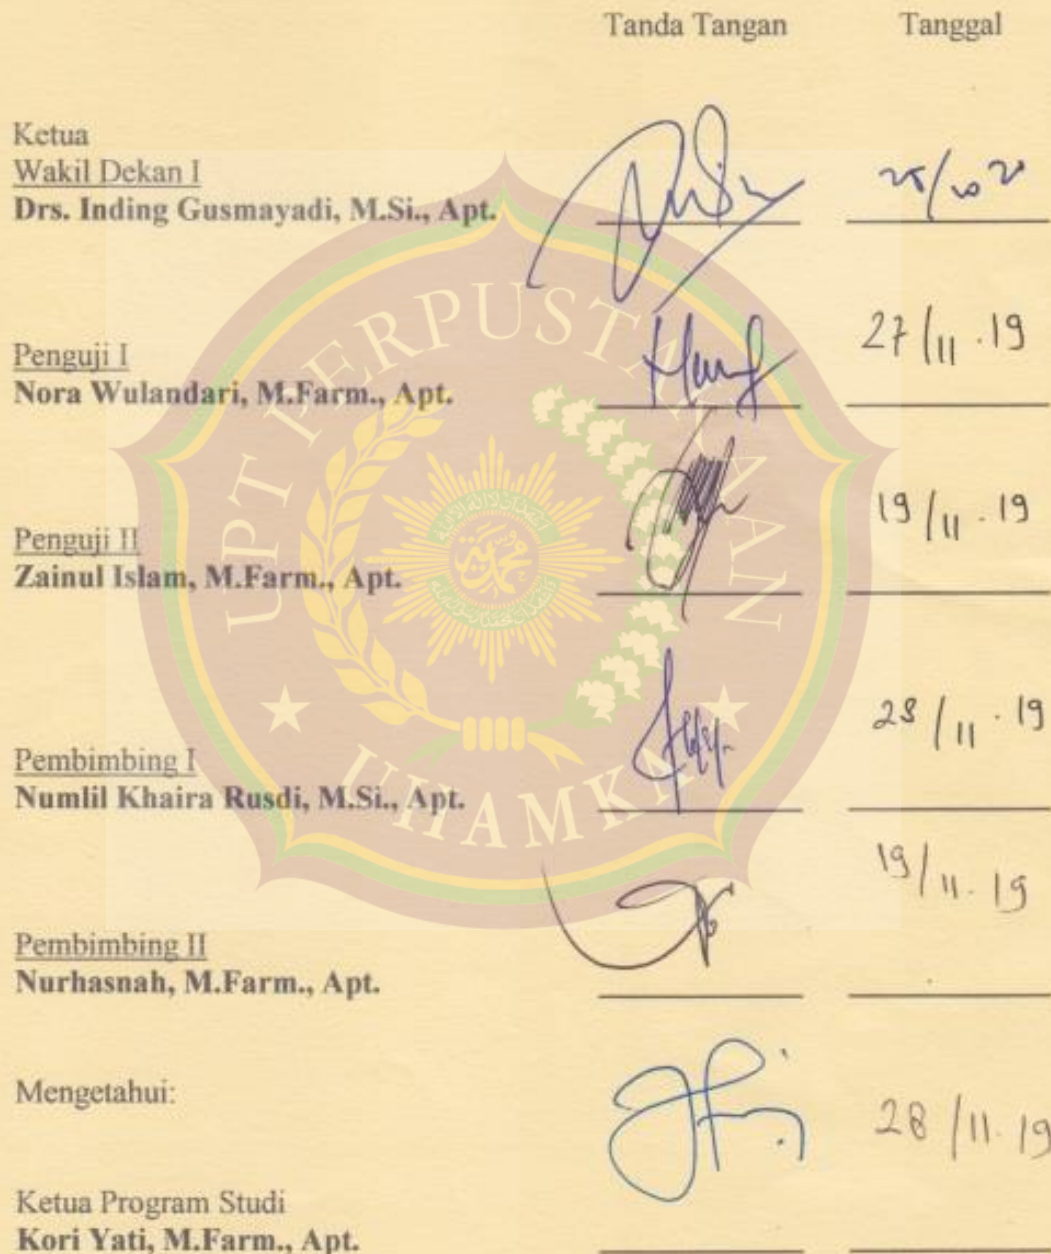 Tanda Tangan Tanggal
Ketua
Wakil Dekan I
Drs. Inding Gusmayadi, M.Si., Apt.
Penguji I
Nora Wulandari, M.Farm., Apt.
27/11.19
Penguji II
Zainul Islam, M.Farm., Apt.
19/11.19
Pembimbing I
Numlil Khaira Rusdi, M.Si., Apt.
/11.19
Pembimbing II
Nurhasnah, M.Farm., Apt.
19/11.19
Mengetahui:
28/11.19
Ketua Program Studi
Kori Yati, M.Farm., Apt.
UPT PERPUSTAKAAN
UHAMKA